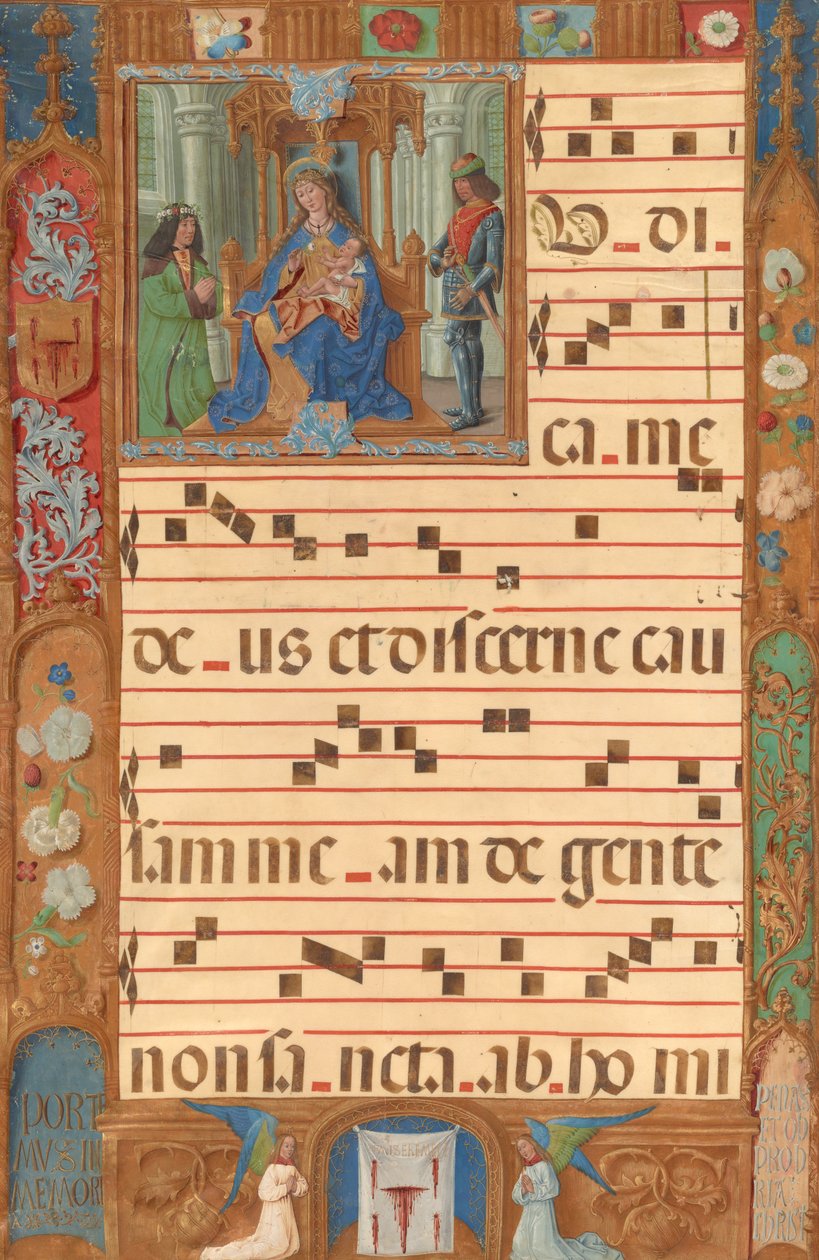 U_di_
ca_me
de_us et discerne cau
sam me_am de gente
non sa_ncta_ab_ho mi
PORTE
MVS IN
MEMORI
A
PENAS
ET OB
PROB
RIA